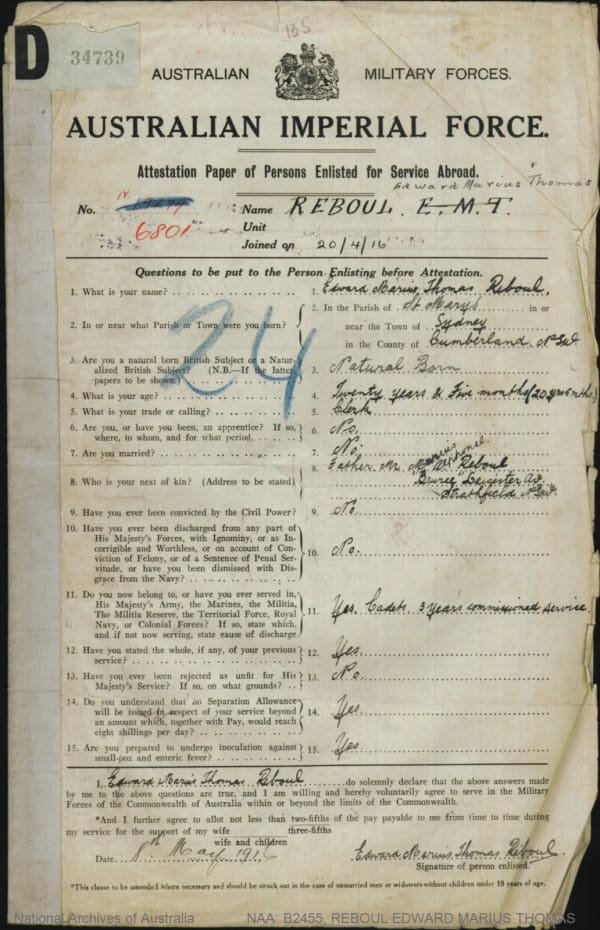 135
D
34739
AUSTRALIAN MILITARY FORCES.
AUSTRALIAN IMPERIAL FORCE.
Attestation Paper of Persons Enlisted for Service Abroad.
Edward Marius Thomas
No. Name REBOUL. E. M. T.
6801 Unit
Joined on 20/4/16
Questions to be put to the Person Enlisting before Attestation.
24
1. What is your name? 1. Edward Marius Thomas Reboul.
2. In or near what Parish or Town were you born? 2. In the Parish of St Marys in or
near the Town of Sydney
in the County of Cumberland. N.S.W.
3. Are you a natural born British Subject or a Natur-
alized British Subject? (N.B.—If the latter,
papers to be shown.) 3. Natural Born
4. What is your age? 4. Twenty years & Five months (20 yrs 5 mths)
5. What is your trade or calling? 5. Clerk
6. Are you, or have you been, an apprentice? If so,
where, to whom, and for what period, 6. No.
7. Are you married? 7. No.
8. Who is your next of kin? (Address to be stated) 8. Father Mr. Marius Reboul
Leicester Av.
Strathfield N.S.W.
9. Have you ever been convicted by the Civil Power? 9. No.
10. Have you ever been discharged from any part of
His Majesty's Forces, with Ignominy, or as In-
corrigible and Worthless, or on account of Con-
viction of Felony, or of a Sentence of Penal Ser-
vitude, or have you been dismissed with Dis-
grace from the Navy? 10. No.
11. Do you now belong to, or have you ever served in,
His Majesty's Army, the Marines, the Militia,
The Militia Reserve, the Territorial Force, Royal
Navy, or Colonial Forces? If so, state which,
and if not now serving, state cause of discharge 11. Yes. Cadets. 3 years commissioned service.
12. Have you stated the whole, if any, of your previous
service? 12. Yes.
13. Have you ever been rejected as unfit for His
Majesty's Service? If so, on what grounds? 13. No.
14. Do you understand that no Separation Allowance
will be issued in respect of your service beyond
an amount which, together with Pay, would reach
eight shillings per day? 14. Yes
15. Are you prepared to undergo inoculation against
small-pox and enteric fever? 15. Yes
I, Edward Marius Thomas Reboul do solemnly declare that the above answers made
by me to the above questions are true, and I am willing and hereby voluntarily agree to serve in the Military
Forces of the Commonwealth of Australia within or beyond the limits of the Commonwealth.
*And I further agree to allot not less than two-fifths of the pay payable to me from time to time during
my service for the support of my wife three-fifths
wife and children
Date 8th May 1916 Edward Marius Thomas Reboul.
Signature of person enlisted.
*This clause to be amended where necessary and should be struck out in the case of unmarried men or widowers without children under 18 years of age.
National Archives of Australia NAA: B2455, REBOUL EDWARD MARIUS THOMAS